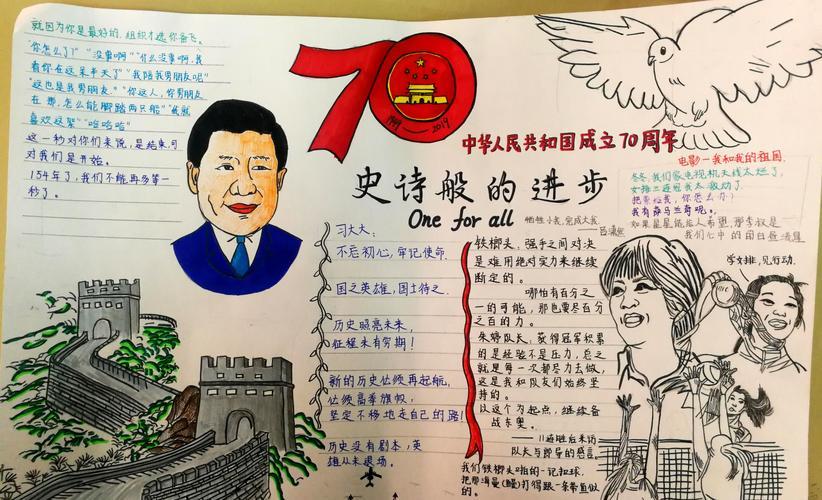 就因为你是最好的,组织才选你备飞。
"你怎么了?""没事啊""什么没事啊,我
看你在这呆半天了""我陪我男朋友呢"
"这也是我男朋友。""你这人,你男朋友
在那,怎么能脚踏两只船""我就
喜欢这架""哈哈哈"
这一秒对你们来说,是结束,可
对我们是开始。
154年了,我们不能再多等一
秒了。
70
1949—2019
中华人民共和国成立70周年
史诗般的进步
One for all
牺牲小我,完成大我。
习大大:
不忘初心,牢记使命.
国之英雄,国士待之.
历史照亮未来,
征程未有穷期!
新的历史依然再起航,
依然高举旗帜,
坚定不移地走自己的路!
历史没有剧本,英
雄从未退场。
铁榔头,强手之间对决
是难用绝对实力来继续
断定的。
哪怕有百分之
一的可能,那也要尽百分
之百的力。
朱特队长,获得冠军积累
的是经验不是压力,总之
就是每一次都尽力去做,
这是我和队友们始终坚
持的。
以这个为起点,继续备
战东奥。
——11连胜后采访
队长与郎导的感言。
我们铁榔头啪的一记扣球,
电影—我和我的祖国.
冬冬,我们家电视机天线太烂了,
女排三连冠我太激动了.
学女排,见行动.